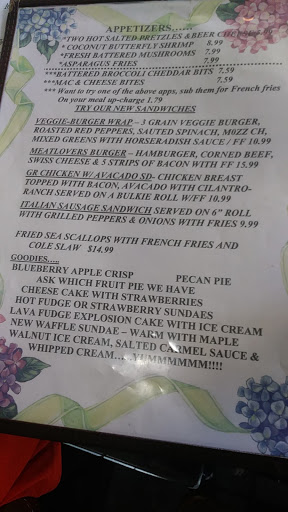 APPETIZERS......
*TWO HOT SALTED PRETZLES &BEER CHEESE
* COCONUT BUTTERFLY SHRIMP 8.99
*FRESH BATTERED MUSHROOMS 7.99
*ASPARAGUS FRIES 7.99
***BATTERED BROCCOLI CHEDDAR BITS 7.59
***MAC & CHEESE BITES 7.59
*** Want to try one of the above apps, sub them for French fries
On your meal up-charge 1.79
TRY OUR NEW SANDWICHES
VEGGIE-BURGER WRAP – 3 GRAIN VEGGIE BURGER,
ROASTED RED PEPPERS, SAUTED SPINACH, MOZZ CH,
MIXED GREENS WITH HORSERADISH SAUCE / FF 10.99
MEATLOVERS BURGER – HAMBURGER, CORNED BEEF,
SWISS CHEESE & 5 STRIPS OF BACON WITH FF 15.99
GR CHICKEN W/ AVACADO SD- CHICKEN BREAST
TOPPED WITH BACON, AVACADO WITH CILANTRO-
RANCH SERVED ON A BULKIE ROLL W/FF 10.99
ITALIAN SAUSAGE SANDWICH SERVED ON 6" ROLL
WITH GRILLED PEPPERS & ONIONS WITH FRIES 9.99
FRIED SEA SCALLOPS WITH FRENCH FRIES AND
COLE SLAW $14.99
GOODIES.....
BLUEBERRY APPLE CRISP PECAN PIE
ASK WHICH FRUIT PIE WE HAVE
CHEESE CAKE WITH STRAWBERRIES
HOT FUDGE OR STRAWBERRY SUNDAES
LAVA FUDGE EXPLOSION CAKE WITH ICE CREAM
NEW WAFFLE SUNDAE – WARM WITH MAPLE
WALNUT ICE CREAM, SALTED CARMEL SAUCE &
WHIPPED CREAM.....YUMMMMMM!!!!